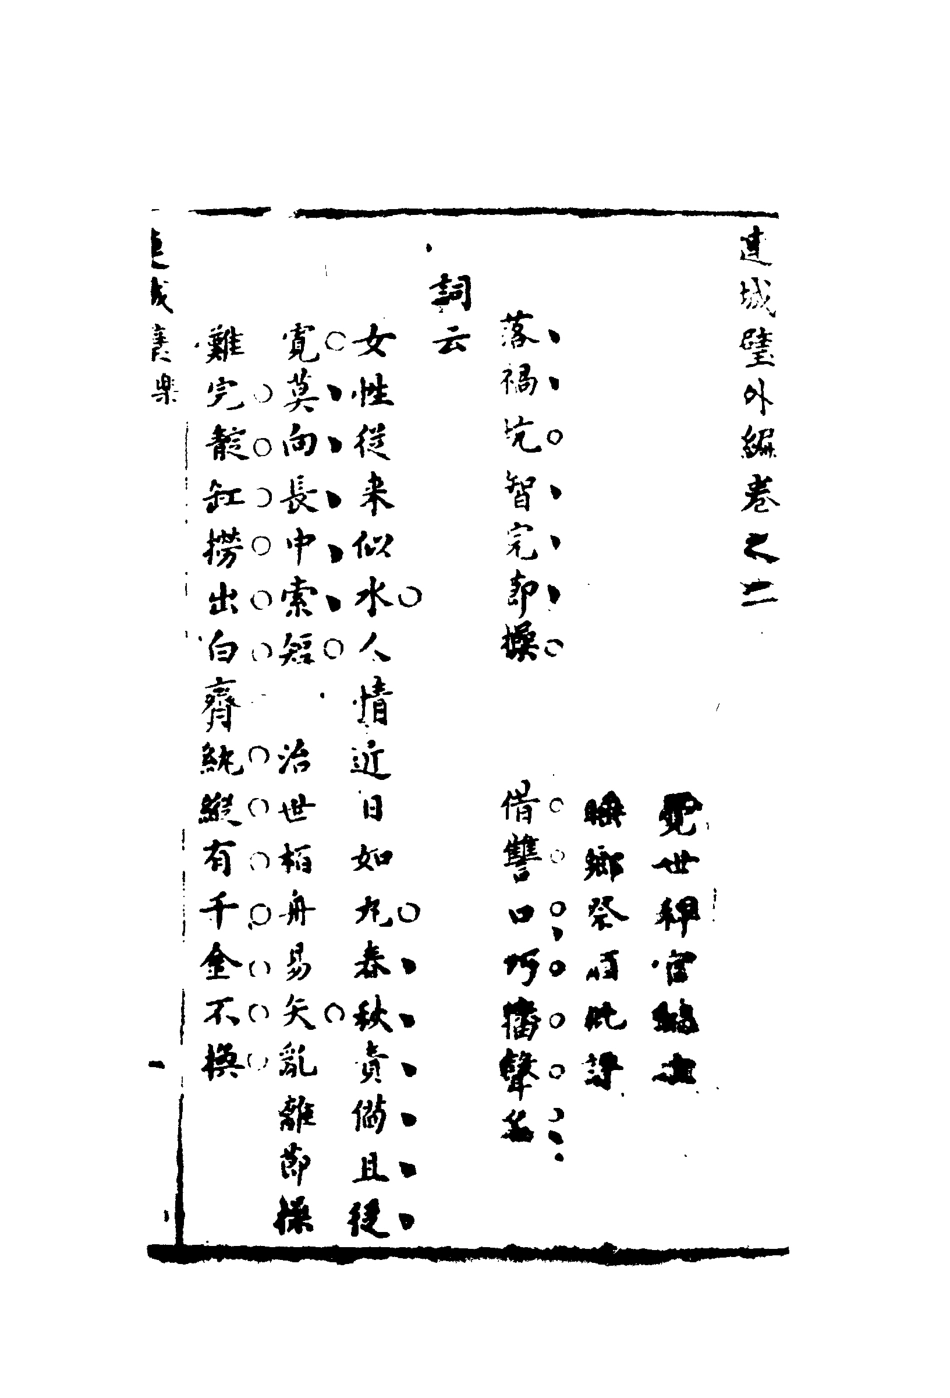 連城璧外編卷之二
覺世稗官編次
睡鄉祭酒批評
落禍坑智完節操　借讐口巧播聲名
詞云
女性從來似水人情近日如丸春秋責備且從
寛莫向長中索短　治世栢舟易矢亂離節操
難完靛缸撈出白齊紈縱有千金不換
連城 樂